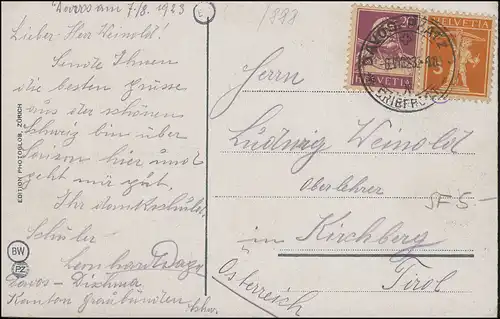 Davos am 7/8. 1923
Lieber Herr Weinold!
Sende Ihnen
die besten Grüsse
aus der schönen
Schweiz bin über
Saison hier und
geht mir gut.
Ihr dankschuld.
Schüler
Leonhard
Davos – Dischma
Kanton Graubünden
Schw.
1888
Herrn
Ludwig Weinold
Oberlehrer
in Kirchberg
Tirol
Österreich
SF 5-
HELVETIA
HELVETIA
20
5
DAVOS PLATZ
BRIEFTR.
EDITION PHOTOGLOB, ZÜRICH
BW
PZ